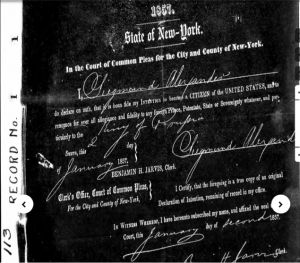 1857.
State of New-York.
In the Court of Common Pleas for the City and County of New-York.
I, Siegmund Alexander
do declare on oath, that it is bona fide my INTENTION to become a CITIZEN of the UNITED STATES, and to
renounce for ever all allegiance and fidelity to any foreign Prince, Potentate, State or Sovereignty whatever, and par-
ticularly to the King of
Sworn, this 2 day
of January 1857,
Siegmund
BENJAMIN H. JARVIS, Clerk.
Clerk's Office, Court of Common Pleas,
For the City and County of New-York.
I Certify, that the foregoing is a true copy of an original
Declaration of Intention, remaining of record in my office.
IN WITNESS WHEREOF, I have hereunto subscribed my name, and affixed the seal
Court, this second day of
January 1857.
Clerk.
113 RECORD NO. 1 1